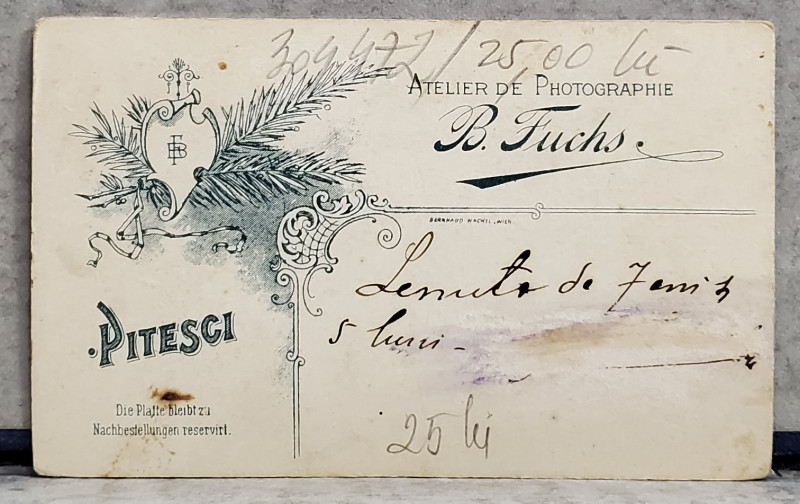 309472/25,00 lei
ATELIER DE PHOTOGRAPHIE
B. Fuchs.
FB
BERNHARD WACHTL, WIEN.
Lenuta de 7 ani și
5 luni -
PITESCI
Die Platte bleibt zu
Nachbestellungen reservirt.
25 lei